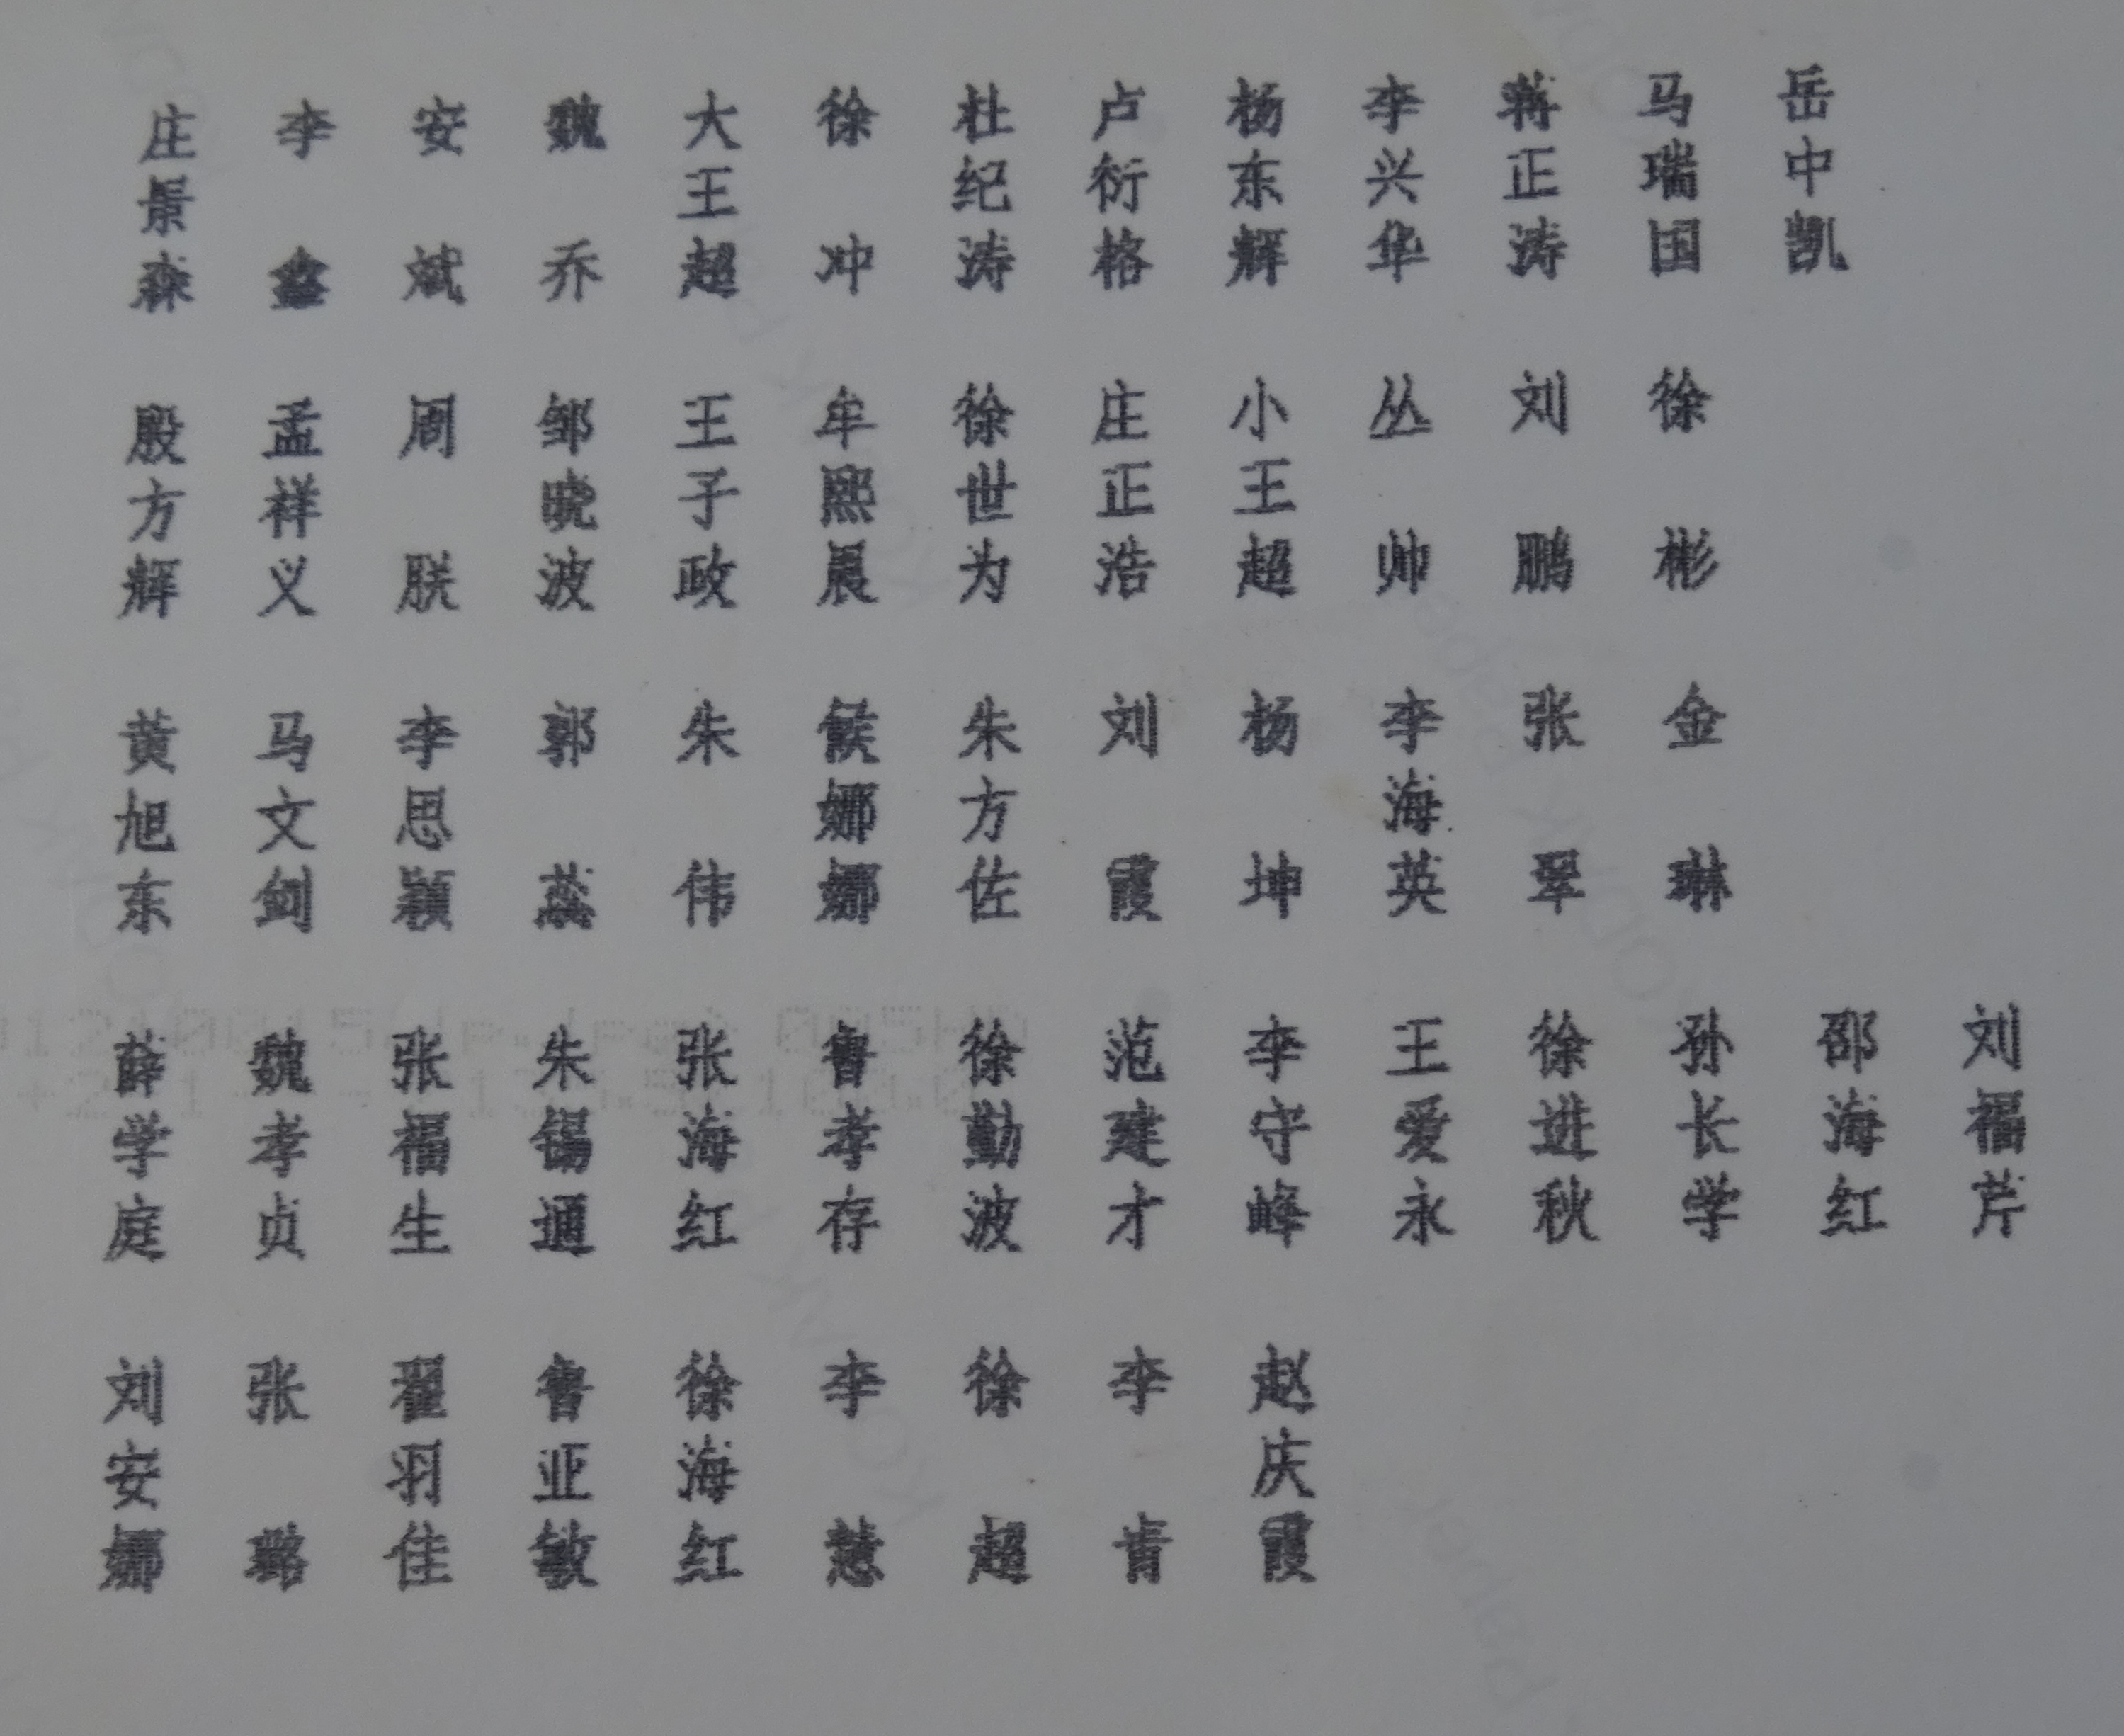 庄景森 李鑫 安斌 魏乔 大王超 徐冲 杜纪涛 卢衍格 杨东辉 李兴华 蒋正涛 马瑞国 岳中凯
殷方辉 孟祥义 周朕 邹晓波 王子政 牟熙晨 徐世为 庄正浩 小王超 丛帅 刘鹏 徐彬
黄旭东 马文剑 李思颖 郭蕊 朱伟 候娜娜 朱方佐 刘霞 杨坤 李海英 张翠 金琳
薛学庭 魏孝贞 张福生 朱锡通 张海红 鲁孝存 徐勤波 范建才 李守峰 王爱永 徐进秋 孙长学 邵海红 刘福芹
刘安娜 张璐 翟羽佳 鲁亚敏 徐海红 李慧 徐超 李肯 赵庆霞